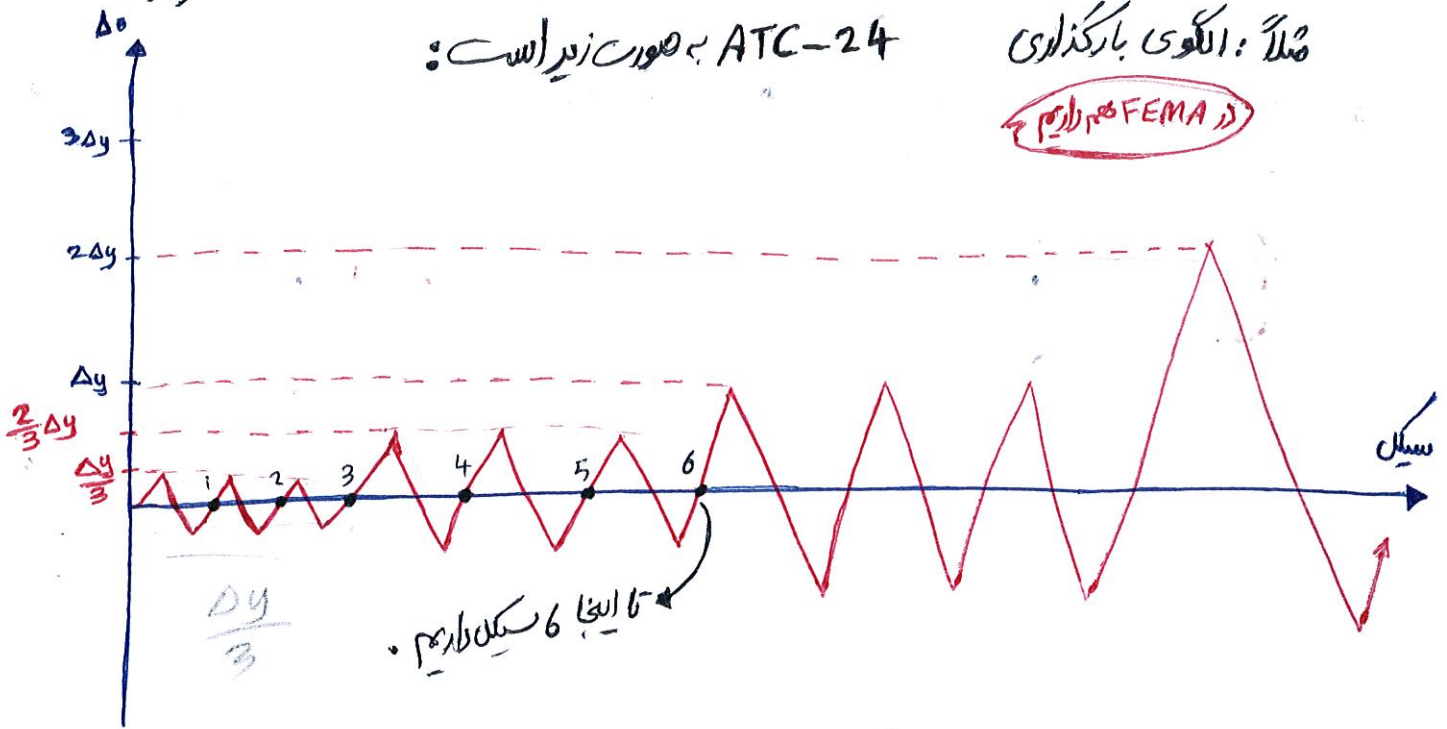 مثلاً : الگوی بارگذاری ATC-24 به صورت زیر است :
در FEMA هم داریم
Δ
3Δy
2Δy
Δy
2/3 Δy
Δy/3
1 2 3 4 5 6
سیکل
Δy/3
تا اینجا 6 سیکل داریم .